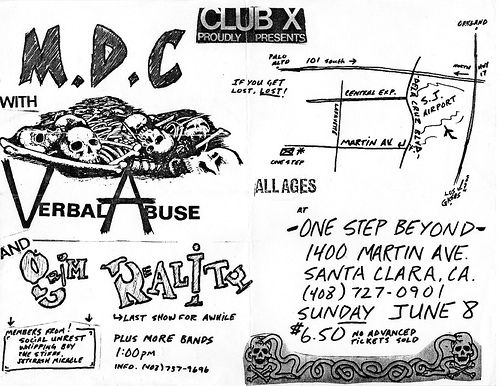 CLUB X
PROUDLY PRESENTS
M.D.C
WITH
VERBAL ABUSE
AND
GRIM REALITY
↳LAST SHOW FOR AWHILE
MEMBERS FROM!
SOCIAL UNREST
WHIPPING BOY
THE STIFFS,
PLUS MORE BANDS
1:00pm
INFO. (408) 737-9696
IF YOU GET
LOST, LOST!
PALO
ALTO
101 SOUTH
OAKLAND
NORTH
HWY
17
CENTRAL EXP.
LAFAYETTE
DE LA CRUZ BLVD.
S.J.
AIRPORT
MARTIN AV.
ONE STEP
LOS
GATOS
ALL AGES
AT
-ONE STEP BEYOND-
1400 MARTIN AVE.
SANTA CLARA, CA.
(408) 727-0901
SUNDAY JUNE 8
$6.50 NO ADVANCED
TICKETS SOLD